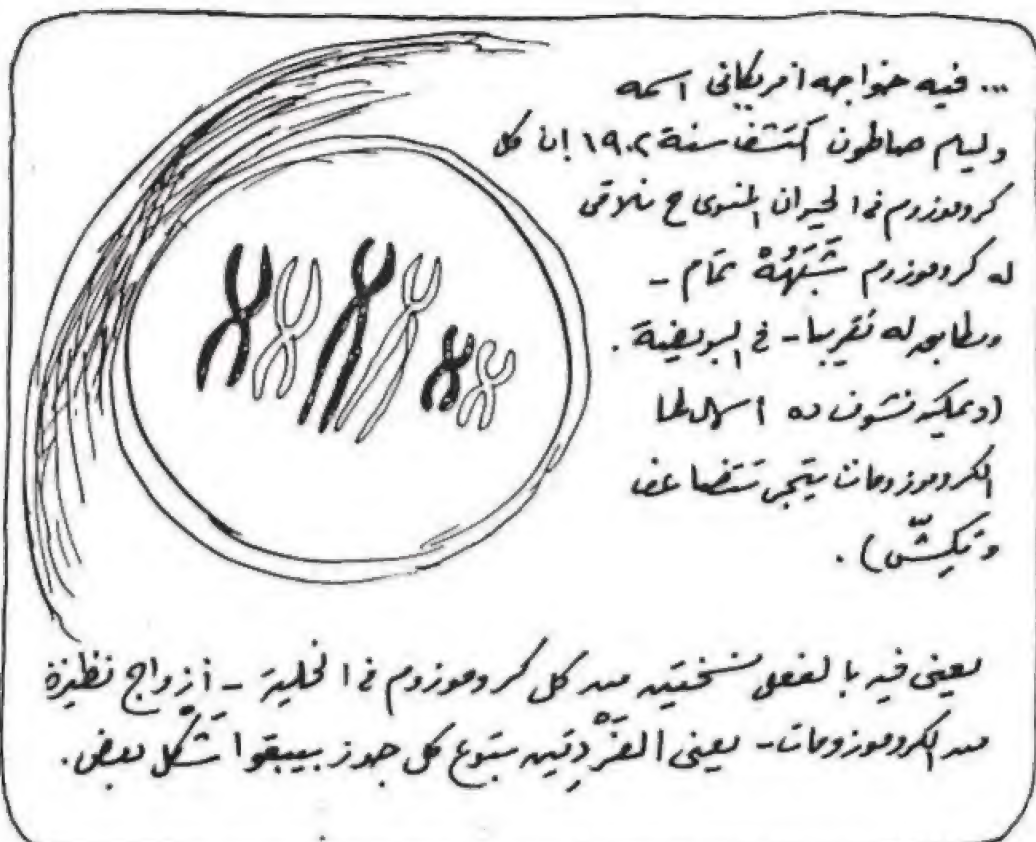 ... فيه خواجه امريكانى اسمه
وليم صاطون اكتشف سنة ١٩٠٢ إن كل
كروموزوم فى الحيوان المنوى ح نلاقى
له كروموزوم شَبَهُهْ تمام -
ومطابق له تقريبا - فى البويضة .
(ويمكن نشوف ده اسهل لما
الكروموزومات بتيجى تتضاعف
وتكِشّ) .
يعنى فيه بالفعل نسختين من كل كروموزوم فى الخلية - أزواج نظيرة
من الكروموزومات - يعنى الفَرْدِتين بتوع كل جوز بيبقوا شَكْل بعض .